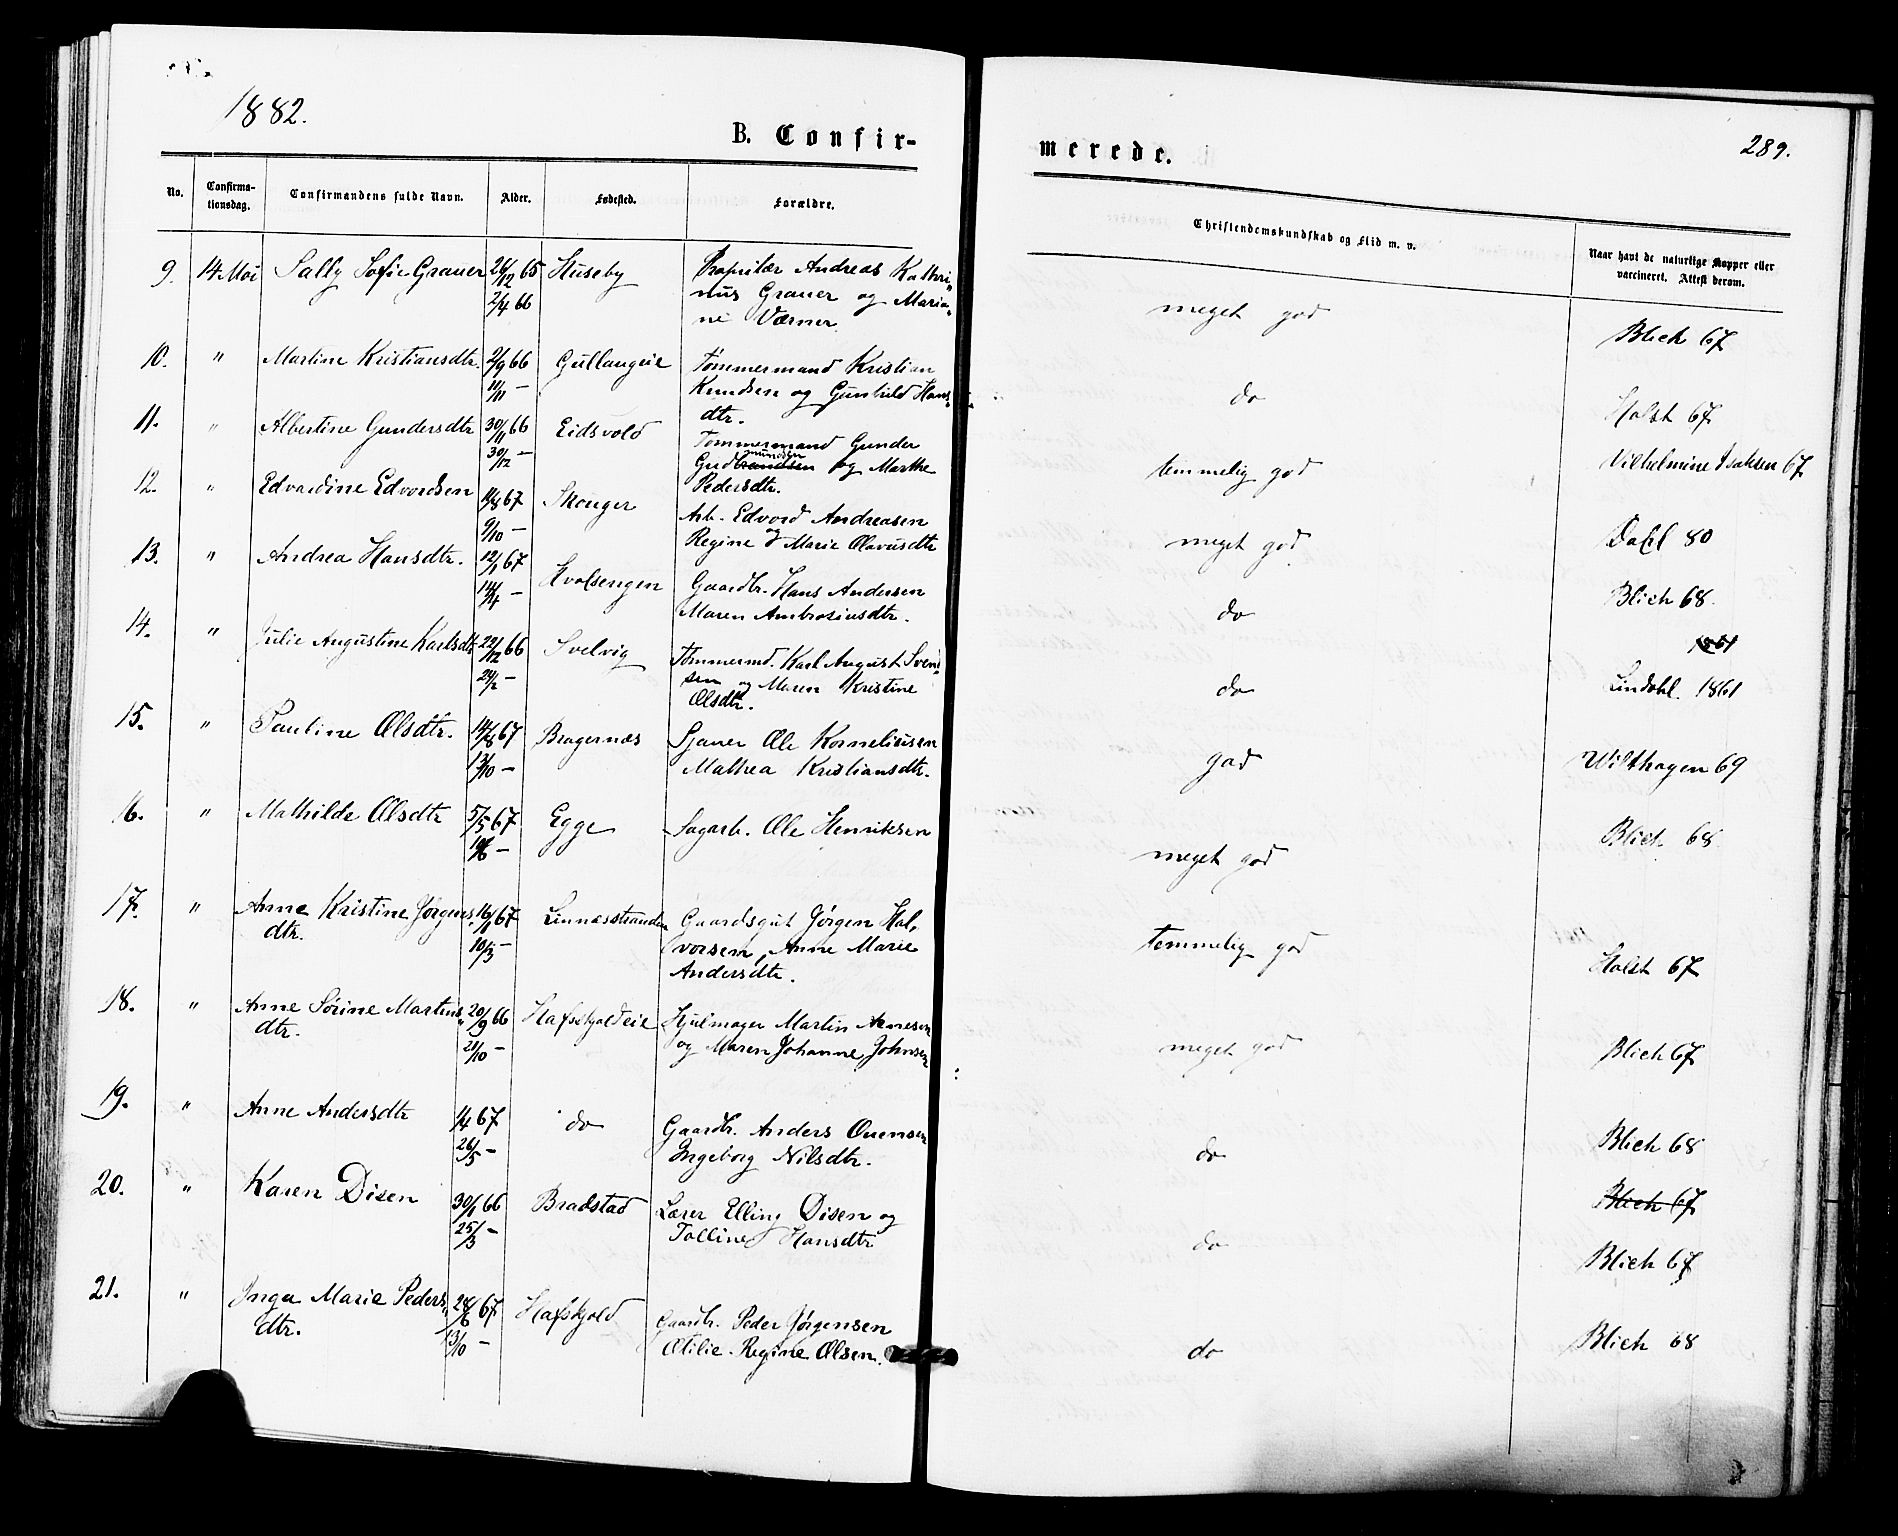 1882.
B. Confir-
merede.
289.
No.
Confirma-
tionsdag.
Confirmandens fulde Navn.
Alder.
Fødested.
Forældre.
Christendomskundskab og Flid m. v.
Naar havt de naturlige Kopper eller
vaccineret. Attest derom.
9. 14 Mai Sally Sofie Grauer 26/12 65 Huseby Propritær Andreas Kathri-
2/4 66 nus Grauer og Maria-
ne Værner
meget god Blich 67
10. " Martine Kristiansdtr. 2/9 66 Gullaugeie Tømmermand Kristian
11/11 — Knudsen og Gunhild Hans-
dtr.
do Holst 67
11. " Albertine Gundersdtr 30/11 66 Eidsvold Tømmermand Gunder
30/12 — Gudbrandsen og Marthe
Pedersdtr.
temmelig god Vilhelmine Isaksen 67
12. " Edvardine Edvardsen 11/8 67 Skouger Arb. Edvard Andreasen
9/10 — Regine og Marie Olavusdtr
meget god Dahl 80
13. " Andrea Hansdtr. 12/1 67 Kvolsengen Gaardbr. Hans Andersen
14/4 — Maren Ambrosiusdtr.
do Blich 68.
14. " Julie Augustine Karlsdtr 22/12 66 Svelvig Tømmermd. Karl August Svend-
24/2 — sen og Maren Kristine
Olsdtr.
do 1861
Lindahl. 1861
15. " Pauline Olsdtr. 14/8 67 Bragernæs Sjauer Ole Korneliusen
13/10 — Mathea Kristiansdtr.
god Wilthagen 69
16. " Mathilde Olsdtr 5/5 67 Egge Sagarb. Ole Henriksen
10/6 —
meget god Blich 68
17. " Anne Kristine Jørgens- 16/1 67 Linnesstranden Gaardsgut Jørgen Hal-
dtr. 10/3 — vorsen, Anne Marie
Andersdtr.
temmelig god Holst 67
18. " Anne Sørine Martins- 20/9 66 Hafskjoldeie Hjulmager Martin Arnesen
dtr. 21/10 — og Maren Johanne Johnsen
meget god Blich 67
19. " Anne Andersdtr 1/4 67 do Gaardbr. Anders Ouensen
26/5 — Ingeborg Nilsdtr.
do Blich 68
20. " Karen Disen 30/1 66 Bradstad Lærer Elling Disen og
25/3 — Tolline Hansdtr
Blich 67
do Blich 67
21. " Inga Marie Peders- 28/6 67 Hafskjold Gaardbr. Peder Jørgensen
dtr. 13/10 — Otilie Regine Olsen.
do Blich 68